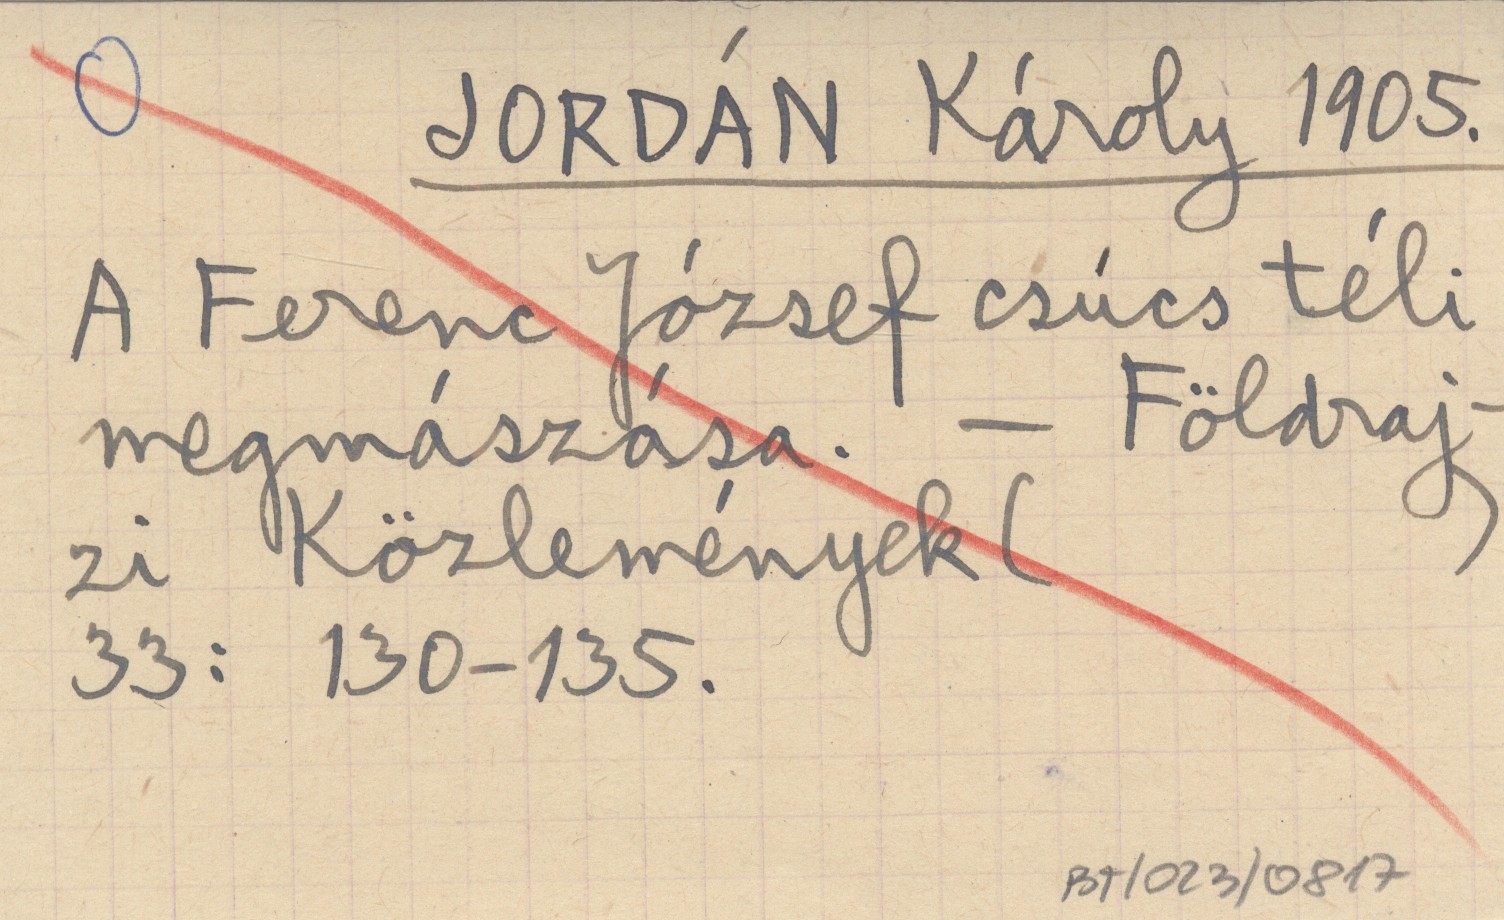 JORDÁN Károly 1905.
A Ferenc József csúcs téli
megmászása. — Földraj-
zi Közlemények ( )
33: 130-135.
BT/023/0817